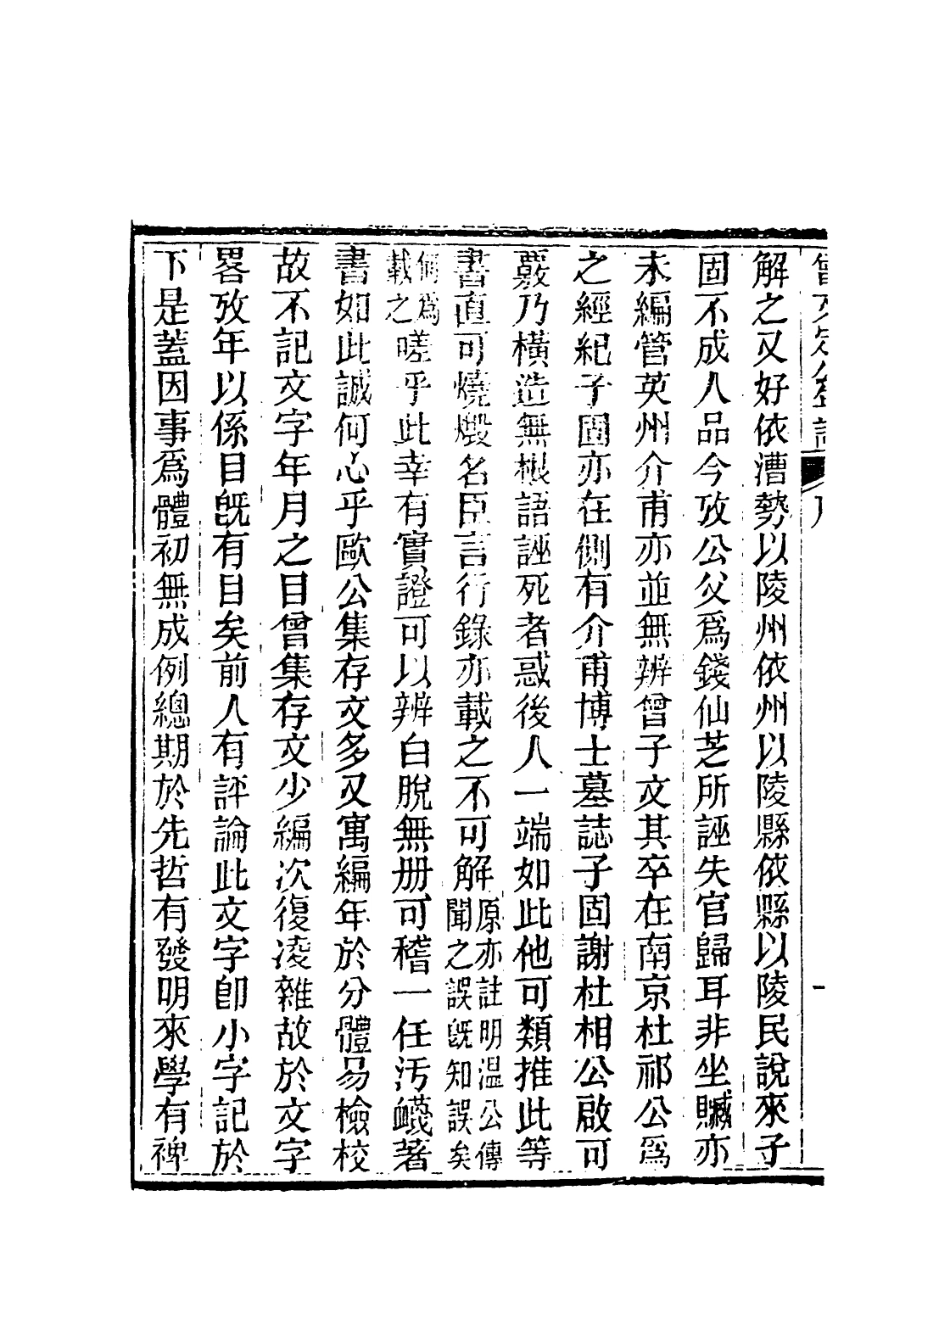 解之又好依漕勢以陵州依州以陵縣依縣以陵民說來子
固不成人品今攷公父爲錢仙芝所誣失官歸耳非坐贓亦
未編管英州介甫亦並無辨曾子文其卒在南京杜祁公爲
之經紀子固亦在側有介甫博士墓誌子固謝杜相公啟可
覈乃橫造無根語誣死者惑後人一端如此他可類推此等
書直可燒燬名臣言行錄亦載之不可解原亦註明溫公傳聞之誤旣知誤矣
何爲載之嗟乎此幸有實證可以辨白脫無册可稽一任汚衊著
書如此誠何心乎歐公集存文多又寓編年於分體易檢校
故不記文字年月之目曾集存文少編次復凌雜故於文字
畧攷年以係目旣有目矣前人有評論此文字卽小字記於
下是蓋因事爲體初無成例總期於先哲有發明來學有裨